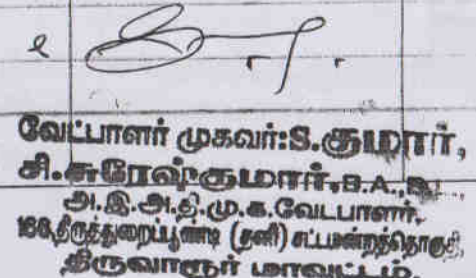 வேட்பாளர் முகவர்:S.குமார்,
சி.சுரேஷ்குமார்,B.A.,
அ.இ.அ.தி.மு.க.வேட்பாளர்,
166,திருத்துறைப்பூண்டி (தனி) சட்டமன்றத்தொகுதி,
திருவாரூர் மாவட்டம்.